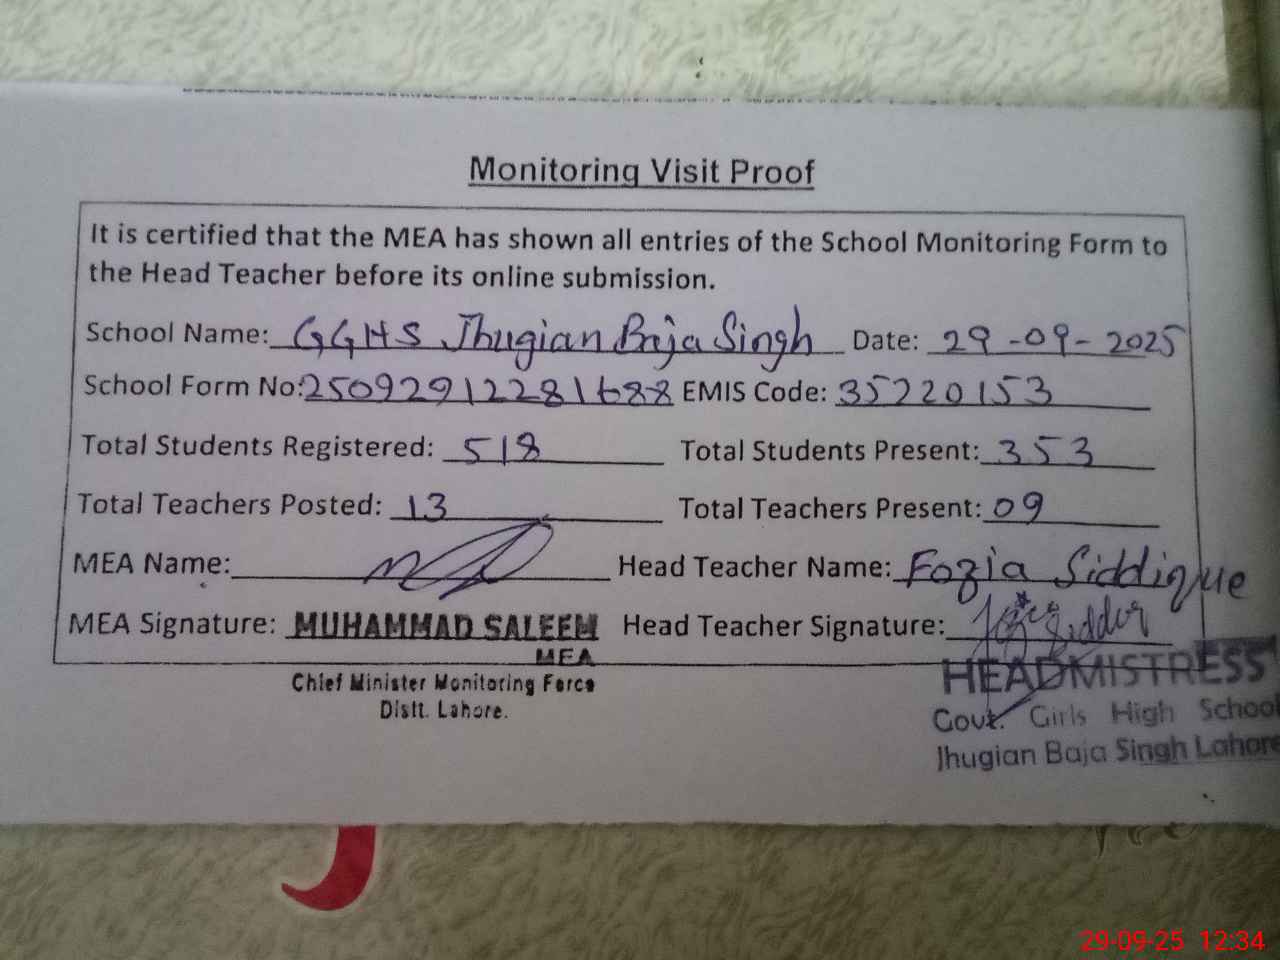 Monitoring Visit Proof
It is certified that the MEA has shown all entries of the School Monitoring Form to
the Head Teacher before its online submission.
School Name: GGHS Jhugian Baja Singh Date: 29-09-2025
School Form No: 250929122281688 EMIS Code: 35220153
Total Students Registered: 518 Total Students Present: 353
Total Teachers Posted: 13 Total Teachers Present: 09
MEA Name: Head Teacher Name: Fozia Siddique
MEA Signature: MUHAMMAD SALEEM Head Teacher Signature:
MEA
Chief Minister Monitoring Force
Distt. Lahore.
HEADMISTRESS
Govt. Girls High School
Jhugian Baja Singh Lahore
29-09-25 12:34